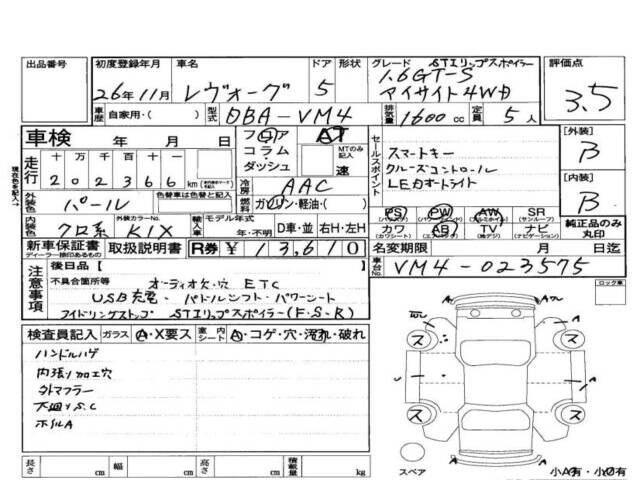 出品番号 初度登録年月 車名 ドア 形状 グレード STIリップスポイラー 評価点
26年11月 レヴォーグ 5 1.6GT-S
アイサイト4WD 3.5
車歴 自家用・( ) 型式 DBA-VM4 排気量 1600 cc 定員 5 人
車検 年 月 日 フロア AT [外装]
走行 十 万 千 百 十 コラム MTのみ記入 セールスポイント スマートキー B
2 0 2 3 6 6 km ダッシュ 速 クルーズコントロール
冷房 AAC LEDオートライト [内装]
外装色 パール 色替車は色替と記入 燃料 ガソリン・軽油・( ) B
内装色 クロ系 外装カラーNo. K1X 輸入車 モデル年式 年・不明 D車・並 右H・左H
PS PW AW SR
カワ AB TV ナビ 純正品のみ丸印
新車保証書 取扱説明書 R券 ¥13,610 名変期限 月 日迄
ディーラー捺印あるもの
注意事項 後日品【 】 車台No. VM4-023575
不具合箇所等 オーディオ欠・穴 ETC ロック車
USB充電・パドルシフト・パワーシート
アイドリングストップ STIリップスポイラー(F・S・R)
検査員記入 ガラス A・X要ス 室内シート A・コゲ・穴・汚れ・破れ
ハンドルハゲ
内張り加工穴
外マフラー
下廻りS.C
ホイルA
長さ cm 幅 cm 高さ cm 積載量 kg
スペア 小A有・小U有